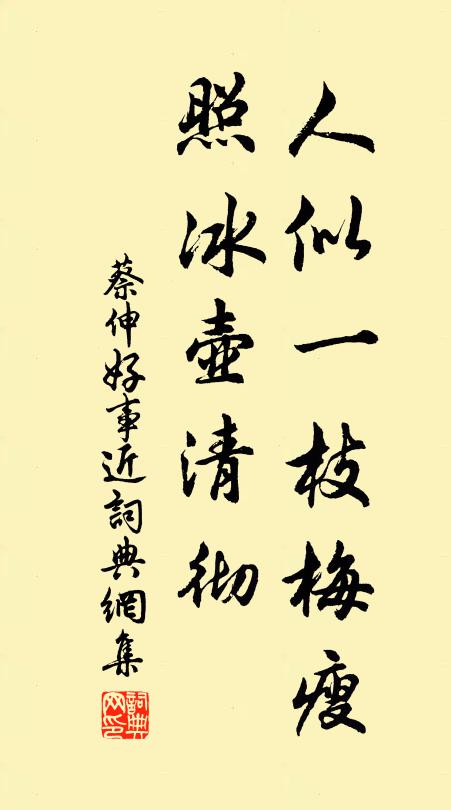 人似一枝梅瘦
照冰壺清彻
蔡伸好事近詞典網集
詞典網印